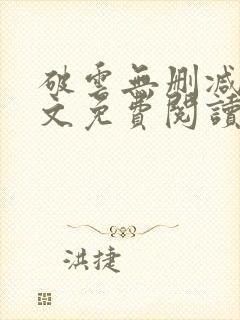 破雲無刪減
文免費閱讀
洪捷